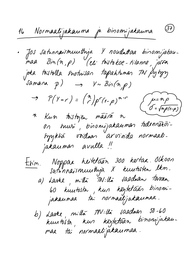 16 Normaalijakauma ja binomijakauma
37
• Jos satunnaismuuttuja Y noudattaa binomijakau-
maa Bin(n,p) (eli toistokoe-tilanne, jossa
joka toistolla tapahtuman TN pysyy
samana p) → Y ~ Bin(n,p)
→ P(Y=r) = (n r) p^r (1-p)^(n-r)
μ = np
σ = √np(1-p)
• Kun toistoja määrä n
on suuri, binomijakauman todennäköi-
syyksiä voidaan arvioida normaali-
jakauman avulla!!
Esim. Noppaa heitetään 300 kertaa. Olkoon
satunnaismuuttuja X kuutosten lkm.
a) Laske, millä TN:llä saadaan
60 kuutosta, kun käytetään binomi-
jakaumaa tai normaalijakaumaa.
b) Laske, millä TN:llä saadaan 50-60
kuutosta, kun käytetään binomijakau-
maa tai normaalijakaumaa.